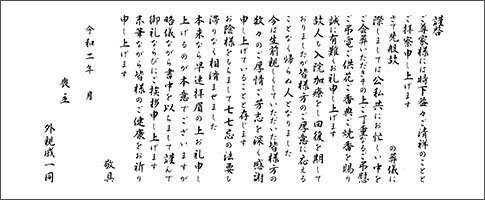 謹啓
ご尊家様には時下益々ご清祥のことと
ご拝察申し上げます
さて先般故　　　　　の葬儀に
際しましては公私共にお忙しい中を
ご会葬いただきその上ご丁重なるご弔慰
ご弔電ご供花ご香典ご焼香を賜り
誠に有難くお礼申し上げます
故人も入院加療をし回復を期して
おりましたが皆様方のご厚意に応える
ことなく帰らぬ人となりました
今は生前親しくしていただいた皆様方の
数々のご厚情ご芳志を深く感謝
申し上げていることと存じます
お陰様をもちまして七七忌の法要も
滞りなく相済ませました
本来なら早速拝眉の上お礼申し
上げるのが本意でございますが
略儀ながら書中を以ちまして謹んで
御礼ならびにご挨拶申し上げます
末筆ながら皆様のご健康をお祈り
申し上げます
敬具
令和二年　月
喪主
外親戚一同